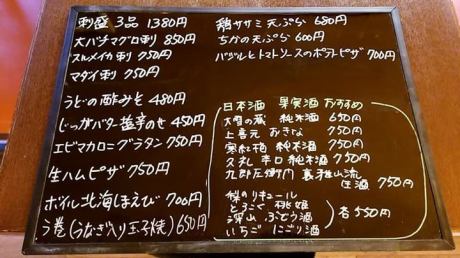 刺盛 3品 1380円
大バチマグロ刺 850円
スルメイカ刺 750円
マダイ刺 750円
うどの酢みそ 480円
じゃがバター塩辛のせ 450円
エビマカロニグラタン 750円
生ハムピザ 750円
ボイル北海しまえび 700円
う巻(うなぎ入り玉子焼) 650円
鶏ササミ 天ぷら 680円
ちかの天ぷら 600円
バジルとトマトソースのポテトピザ 700円
日本酒 果実酒 おすすめ
大雪の蔵 純米酒 650円
上喜元 おきな 750円
寒紅梅 純米酒 750円
久礼 辛口純米酒 750円
九郎左衛門 裏雅山流
生酒 750円
梨のリキュール
とろこく 桃姫
深山 ぶどう酒
いちご にごり酒
各550円